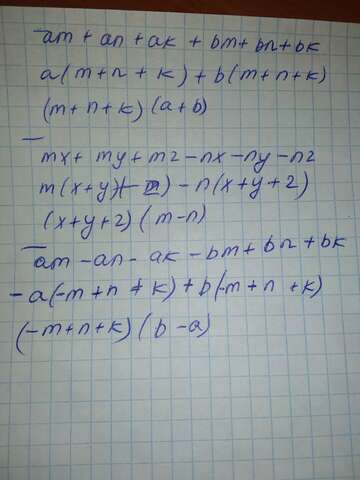 am + an + ak + bm + bn + bk
a(m + n + k) + b(m + n + k)
(m + n + k) (a + b)
mx + my + mz - nx - ny - nz
m(x + y + z) - n(x + y + z)
(x + y + z) (m - n)
am - an - ak - bm + bn + bk
- a(-m + n + k) + b(-m + n + k)
(-m + n + k) (b - a)